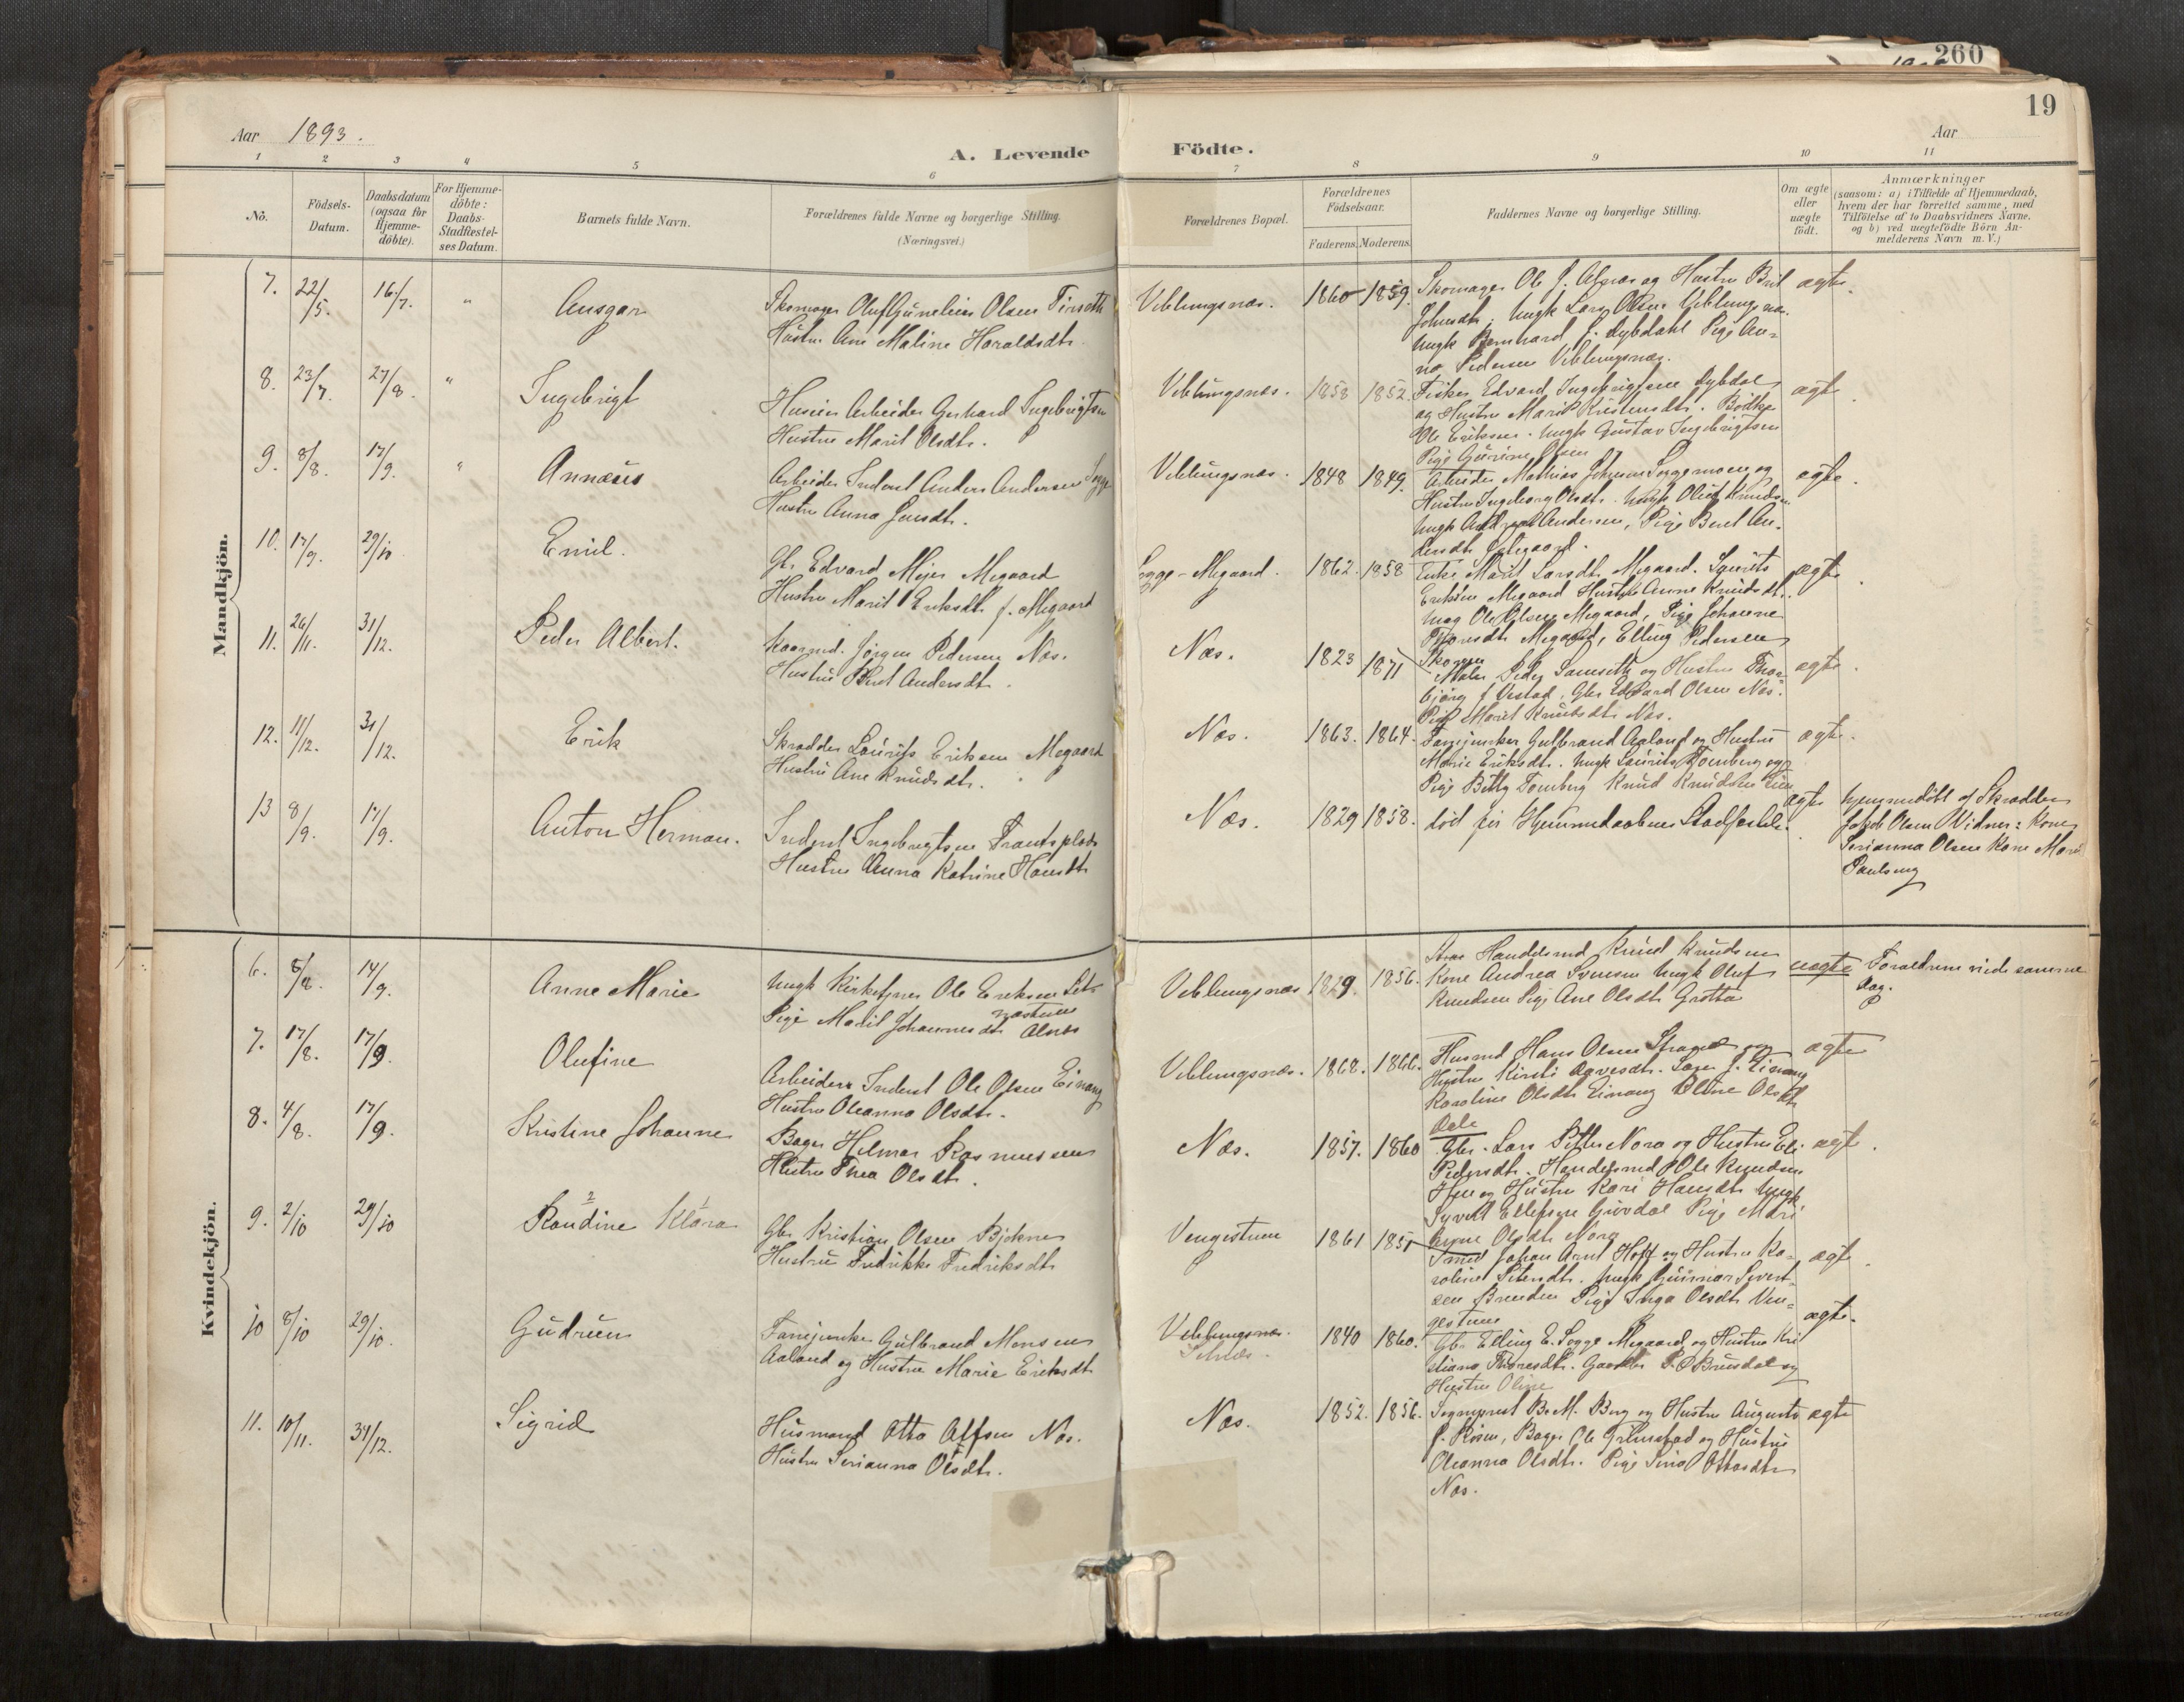 260
19
Aar 1893.
Aar
A. Levende Födte.
1 2 3 4 5 6 7 8 9 10 11
No.
Födsels-
Datum.
Daabsdatum
(ogsaa for
Hjemme-
döbte).
For Hjemme-
döbte:
Daabs-
Stadfæstel-
ses Datum.
Barnets fulde Navn.
Forældrenes fulde Navne og borgerlige Stilling.
(Næringsvei.)
Forældrenes Bopæl.
Forældrenes
Födselsaar.
Faderens. Moderens.
Faddernes Navne og borgerlige Stilling.
Om ægte
eller
uægte
födt.
Anmærkninger
(saasom: a) i Tilfælde af Hjemmedaab,
hvem der har forrettet samme, med
Tilföielse af to Daabsvidners Navne.
og b) ved uægtefödte Börn An-
melderens Navn m. V.)
Mandkjön.
7. 22/5. 16/7. " Ansgar
Skomager Oluf Gunelius Olsen Tinseth
Hustru Ane Maline Haraldsdtr.
Veblungsnæs. 1860 1859.
Skomager Ole J. Alnæs og Hustru Brit
Johnsdtr. Ungk Lars Olsen Veblungsnæs.
Ungk Bernhard J. Dybdahl Pige An-
na Pedersen Veblungsnæs.
ægte.
8. 23/7. 27/8. " Ingebrigt
Huseier Arbeider Gerhard Ingebrigtsen
Hustru Marit Olsdtr.
Veblungsnæs. 1858 1852.
Fisker Edvard Ingebrigtsen Dybdal
og Hustru Marit Kristensdtr. Bödker
Ole Eriksen. Ungk Gustav Ingebrigtsen
Pige Gurine Olsen
ægte.
9. 8/8. 17/9. " Annæus
Arbeider Inderst Anders Andersen Sogge
Hustru Anna Jensdtr.
Veblungsnæs. 1848 1849.
Arbeider Mathias Johnsen Soggemoen og
Hustru Ingeborg Olsdtr. Ungk Oluf Knudsen
Ungk Andreas Andersen, Pige Beret An-
dersdtr
ægte.
10. 17/9. 29/10 Emil.
Gbr Edvard Mejer Megaard
Hustru Marit Eriksdtr f. Megaard
Sogge-Megaard. 1862. 1858
Enke Marit Larsdtr Megaard. Laurits
Eriksen Megaard Hustru Anne Knudsdtr.
Ungk Ole Olsen Megaard, Pige Johanne
Thoresdtr Megaard, Elling Pedersen
ægte.
11. 26/11. 31/12. Peder Albert.
Kaarmd. Jörgen Pedersen Næs.
Hustru Beret Andersdtr.
Næs. 1823 1871
Maler Peder Samseth og Hustru Thor-
björg f Vestad, Gbr Edvard Olsen Næs.
Pige Marit Knudsdtr Næs.
ægte.
12. 11/12. 31/12. Erik
Skrædder Laurits Eriksen Megaard
Hustru Ane Knudsdtr.
Næs. 1863. 1864.
Fanejunker Gulbrand Aaland og Hustru
Marie Eriksdtr. Ungk Laurits Tomberg og
Pige Betty Tomberg Knud Knudsen
ægte.
13 8/9. 17/9. Anton Herman.
Inderst Ingebrigtsen Frantsplads
Hustru Anna Katrine Hansdtr
Næs. 1829 1858.
död för Hjemmedaabens Stadfæstelse.
ægte
hjemmedöbt af Skrædder
Jakob Olsen Vidner: Kone
Serianna Olsen Kone Marit
Paulsen
Kvindekjön.
6. 8/8. 14/9. Anne Marie
Ungk Kirketjener Ole Eriksen Set-
næstuen
Pige Marit Johannesdtr Alnæs
Veblungsnæs 1829. 1856.
Handelsmd Knud Knudsen
Kone Andrea Svensen Ungk Oluf
Knudsen Pige Ane Olsdtr Grötta
uægte
Forældrene viede samme
Dag.
7. 17/8. 17/9. Olufine
Arbeider Inderst Ole Olsen Einang
Hustru Oleanna Olsdtr.
Veblungsnæs. 1868. 1866.
Husmd Hans Olsen og
Hustru Kirsti Lars J. Einang
Karoline Olsdtr Einang Oline Olsdtr
Dale
ægte
8. 4/8. 17/9. Kristine Johanne
Bager Helmer Rasmussen
Hustru Thea Olsdtr.
Næs. 1857. 1860
Gbr. Lars Petter Nora og Hustru Eli
Pedersdtr. Handelsmd Ole Knudsen
Hen og Hustru Kari Hansdtr Ungk
Syvert Ellefsen Gjördal Pige Mari
Olsdtr Nora
ægte.
9. 2/10 29/10 Randine Klara
2 1
Gbr Kristian Olsen Bjöknes
Hustru Fredrikke Fredriksdtr
Vengestuen 1861 1851
Smed Johan Arnt Hoff og Hustru Ka-
roline Petersdtr. Ungk Gunnar Sivert-
sen Brenden Pige Inga Olsdtr Ven-
gestuen
ægte.
10 8/10 29/10. Gudrun
Fanejunker Gulbrand Monsen
Aaland og Hustru Marie Eriksdtr
Veblungsnæs.
Setnæs. 1840 1860.
Gbr. Elling E. Sogge Megaard og Hustru Kri
stiana Thoresdtr. Gaardbr L. O Brusdal og
Hustru Oline
ægte.
11. 10/11. 31/12. Sigrid
Husmand Otto Olsen Næs.
Hustru Serianna Olsdtr.
Næs. 1852. 1856.
Sogneprest B. M. Berg og Hustru Augusta
f. Rosen, Bager Ole Grimstad og Hustru
Oleanna Olsdtr. Pige Sina Ottosdtr
Næs.
ægte